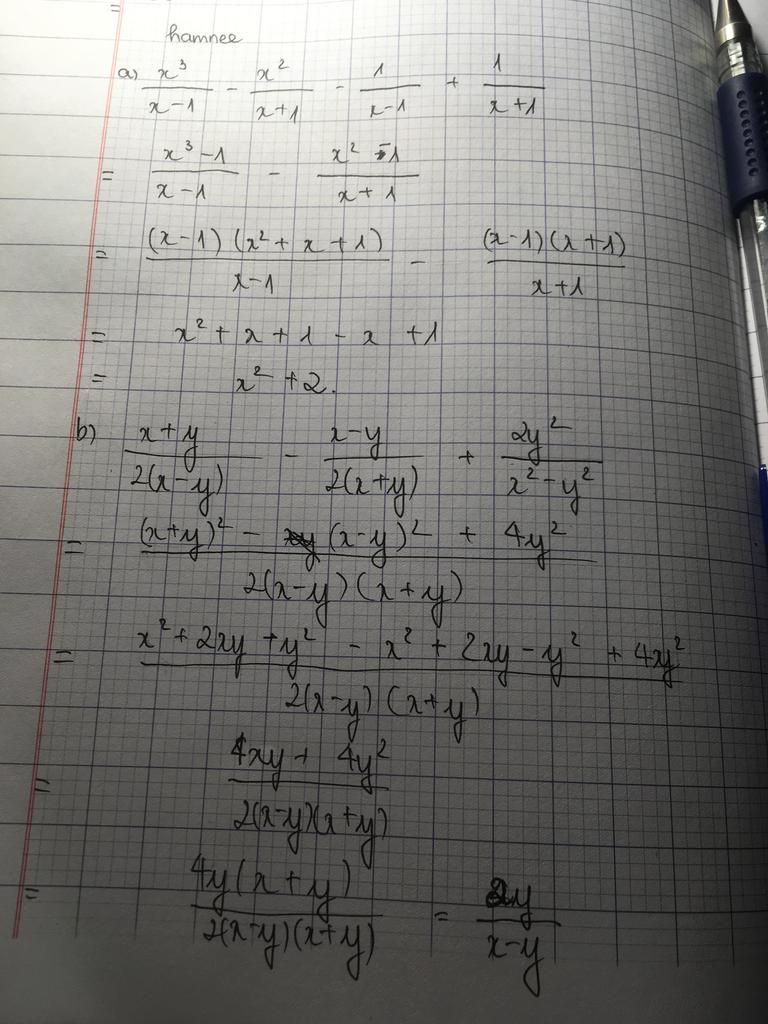 =
hamnee
a) x³/(x-1) - x²/(x+1) - 1/(x-1) + 1/(x+1)
= (x³-1)/(x-1) - (x²-1)/(x+1)
= (x-1)(x²+x+1)/(x-1) - (x-1)(x+1)/(x+1)
= x²+x+1-x+1
= x²+2.
b) (x+y)/2(x-y) - (x-y)/2(x+y) + 2y²/(x²-y²)
= ((x+y)² - (x-y)² + 4y²)/2(x-y)(x+y)
= (x²+2xy+y² - x²+2xy-y² + 4xy²)/2(x-y)(x+y)
= (4xy+4y²)/2(x-y)(x+y)
= 4y(x+y)/2(x-y)(x+y) = 2y/(x-y)